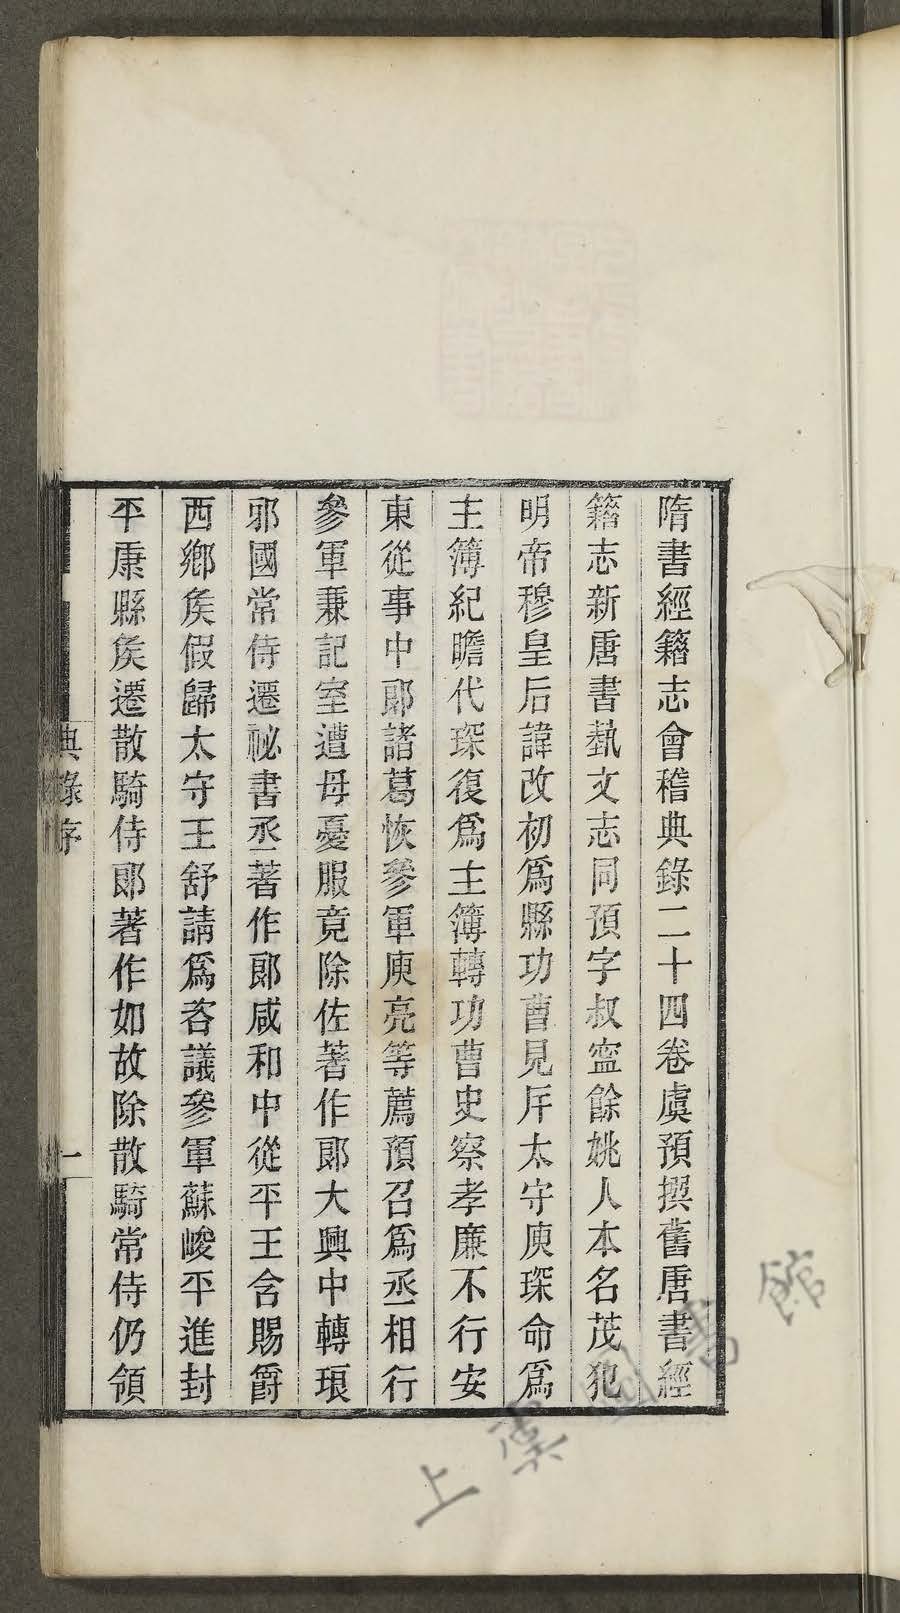 隋書經籍志會稽典錄二十四卷虞預撰舊唐書經
籍志新唐書藝文志同預字叔寍餘姚人本名茂犯
明帝穆皇后諱改初爲縣功曹見斥太守庾琛命爲
主簿紀瞻代琛復爲主簿轉功曹史察孝廉不行安
東從事中郞諸葛恢參軍庾亮等薦預召爲丞相行
參軍兼記室遭母憂服竟除佐著作郞大興中轉琅
邪國常侍遷祕書丞著作郞咸和中從平王含賜爵
西鄉矦假歸太守王舒請爲咨議參軍蘇峻平進封
平康縣矦遷散騎侍郞著作如故除散騎常侍仍領
典錄序
一
上虞圖書館